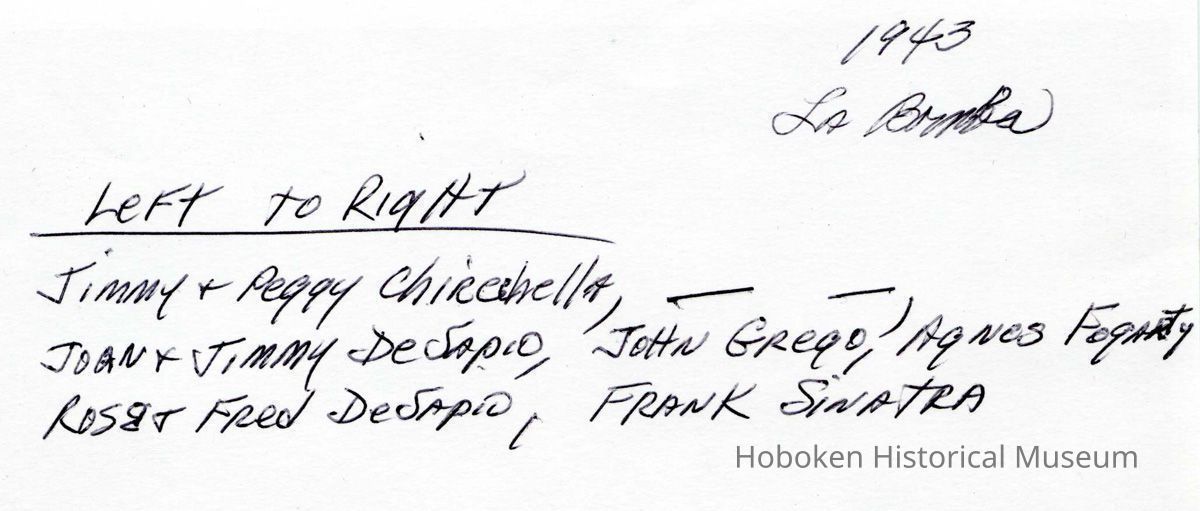 1943
La Bomba
Left to Right
Jimmy + Peggy Chirchella, — —,
Joan + Jimmy DeSapio, John Grego, Agnes Fogarty
Rose + Fred DeSapio, Frank Sinatra
Hoboken Historical Museum